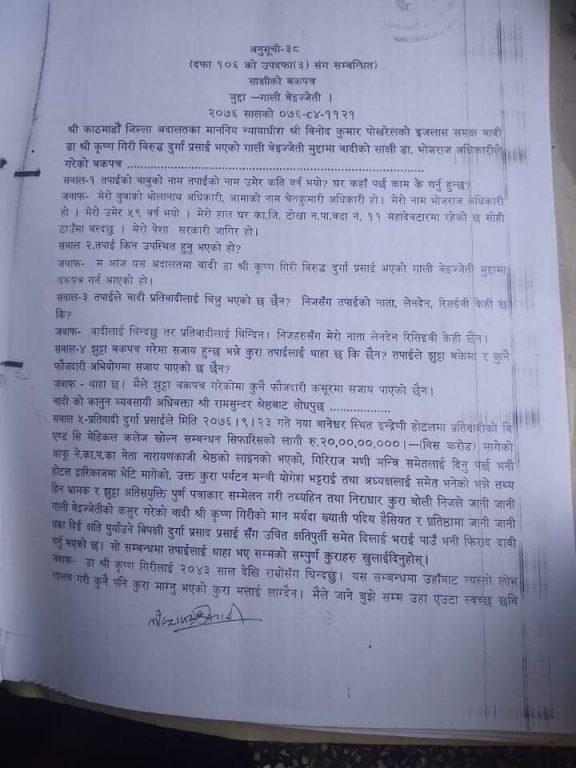 अनुसूची-३८
(दफा १०६ को उपदफा(३) संग सम्बन्धित)
साक्षीको बकपत्र
मुद्दा –गाली बेइज्जेती ।
२०७६ सालको ०७६-C४-११२१
श्री काठमाडौं जिल्ला अदालतका माननिय न्यायाधीश श्री विनोद कुमार पोखरेलको इजलास समक्ष वादी
डा श्री कृष्ण गिरी विरुद्ध दुर्गा प्रसाई भएको गाली बेइज्जेती मुद्दामा वादीको साक्षी डा. भोजराज अधिकारीले
गरेको बकपत्र ........................................................................
सवाल-१ तपाईको बाबुको नाम तपाईको नाम उमेर कति वर्ष भयो? घर कहाँ पर्छ काम के गर्नु हुन्छ?
जवाफ- मेरो बुवाको भोलानाथ अधिकारी, आमाको नाम चेतकुमारी अधिकारी हो। मेरो नाम भोजराज अधिकारी
हो । मेरो उमेर ५९ वर्ष भयो । मेरो हाल घर का.जि. टोखा न.पा.वडा नं. ११ महादेवटारमा रहेको छ सोही
ठाउँमा बस्दछु । मेरो पेशा सरकारी जागिर हो।
सवाल २.तपाई किन उपस्थित हुनु भएको हो?
जवाफ- म आज यस अदालतमा वादी डा श्री कृष्ण गिरी विरुद्ध दुर्गा प्रसाई भएको गाली बेइज्जेती मुद्दामा
बकपत्र गर्न आएको हो।
सवाल-३ तपाईले वादी प्रतिवादीलाई चिन्नु भएको छ छैन? निजसँग तपाईको नाता, लेनदेन, रिसईवी केही छ
कि?
जवाफ- वादीलाई चिन्दछु तर प्रतिवादीलाई चिन्दिन। निजहरुसँग मेरो नाता लेनदेन रिसिइवी केही छैन।
सवाल-४ झुट्ठा बकपत्र गरेमा सजाय हुन्छ भन्ने कुरा तपाईलाई थाहा छ कि छैन? तपाईले झुट्ठा बकेमा र कुनै
फौजदारी अभियोगमा सजाय पाएको छ छैन?
जवाफ - थाहा छ। मैले झुट्ठा बकपत्र गरेकोमा कुनै फौजदारी कसूरमा सजाय पाएको छैन।
वादी को कानुन व्यवसायी अधिवक्ता श्री रामसुन्दर श्रेष्ठबाट सोधपुछ ....................
सवाल ५-प्रतिवादी दुर्गा प्रसाईले मिति २०७६।९।२३ गते नया बानेश्वर स्थित इन्द्रेणी होटलमा प्रतिवादीको वि
एण्ड सि मेडिकल कलेज खोल्न सम्बन्धन सिफारिसको लागी रु.२०,००,००,०००।–(विस करोड) मागेको
आफू ने.का.प.का नेता नारायणकाजी श्रेष्ठको लाइनको भएको, गिरिराज मणी मन्त्रि समेतलाई दिनु पर्छ भनी
होटल द्वारिकाजमा भेटि मागेको, उक्त कुरा पर्यटन मन्त्री योगेश भट्टराई तथा अध्यक्षलाई समेत भनेको भन्ने तथ्य
हिन भ्रामक र झुट्ठा अतिसयुक्ति पुर्ण पत्राकार सम्मेलन गरी तथ्यहिन तथा निराधार कुरा बोली निजले जानी जानी
गाली बेइज्जेतीको कसुर गरेको वादी श्री कृष्ण गिरीको मान मर्यदा ख्याती पदिय हैसियत र प्रतिष्ठामा जानी जानी
धक्का दिई क्षति पुर्याउने बिपक्षी दुर्गा प्रसाद प्रसाई सँग उचित क्षतिपुर्ती समेत दिलाई भराई पाउँ भनी फिराद दावी
गर्नु भएको छ। सो सम्बन्धमा तपाईलाई थाहा भए सम्मको सम्पुर्ण कुराहरु खुलाईदिनुहोस्।
जवाफ- डा श्री कृष्ण गिरीलाई २०४३ साल देखि राम्रोसँग चिन्दछु। यस सम्बन्धमा उहाँबाट त्यस्तो लोभ
लालच गरी कुनै पनि कुरा माग्नु भएको कुरा मलाई लाग्दैन। मैले जाने बुझे सम्म उहा एउटा स्वच्छ छवि